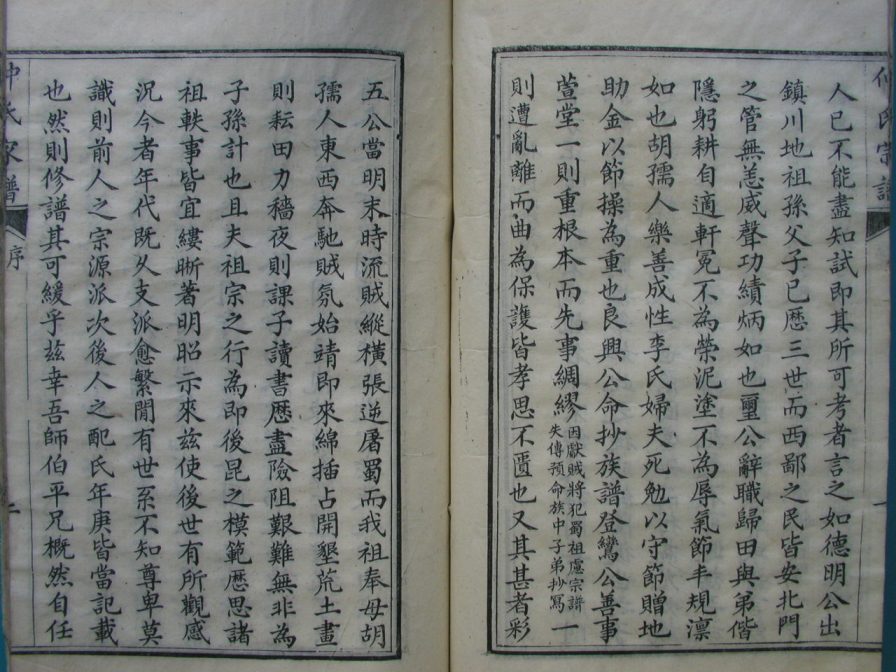 人已不能盡知試即其所可考者言之如德明公出
鎮川地祖孫父子已歷三世而西鄙之民皆安北門
之管無恙威聲功績炳如也璽公辭職歸田與弟偕
隱躬耕自適軒冕不為榮泥塗不為辱氣節丰規凜
如也胡孺人樂善成性李氏婦夫死勉以守節贈地
助金以節操為重也良興公命抄族譜登鸞公善事
萱堂一則重根本而先事綢繆因獻賊將犯蜀祖慮宗譜失傳預命族中子弟抄寫一
則遭亂離而曲為保護皆孝思不匱也又其甚者彩
五公當明末時流賊縱橫張逆屠蜀而我祖奉母胡
孺人東西奔馳賊氛始靖即來綿插占開墾荒土晝
則耘田力穡夜則課子讀書歷盡險阻艱難無非為
子孫計也且夫祖宗之行為即後昆之模範歷思諸
祖軼事皆宜縷晰著明昭示來茲使後世有所觀感
況今者年代既久支派愈繁閒有世系不知尊卑莫
識則前人之宗源派次後人之配氏年庚皆當記載
也然則修譜其可緩乎茲幸吾師伯平兄概然自任
氏家譜
序
二